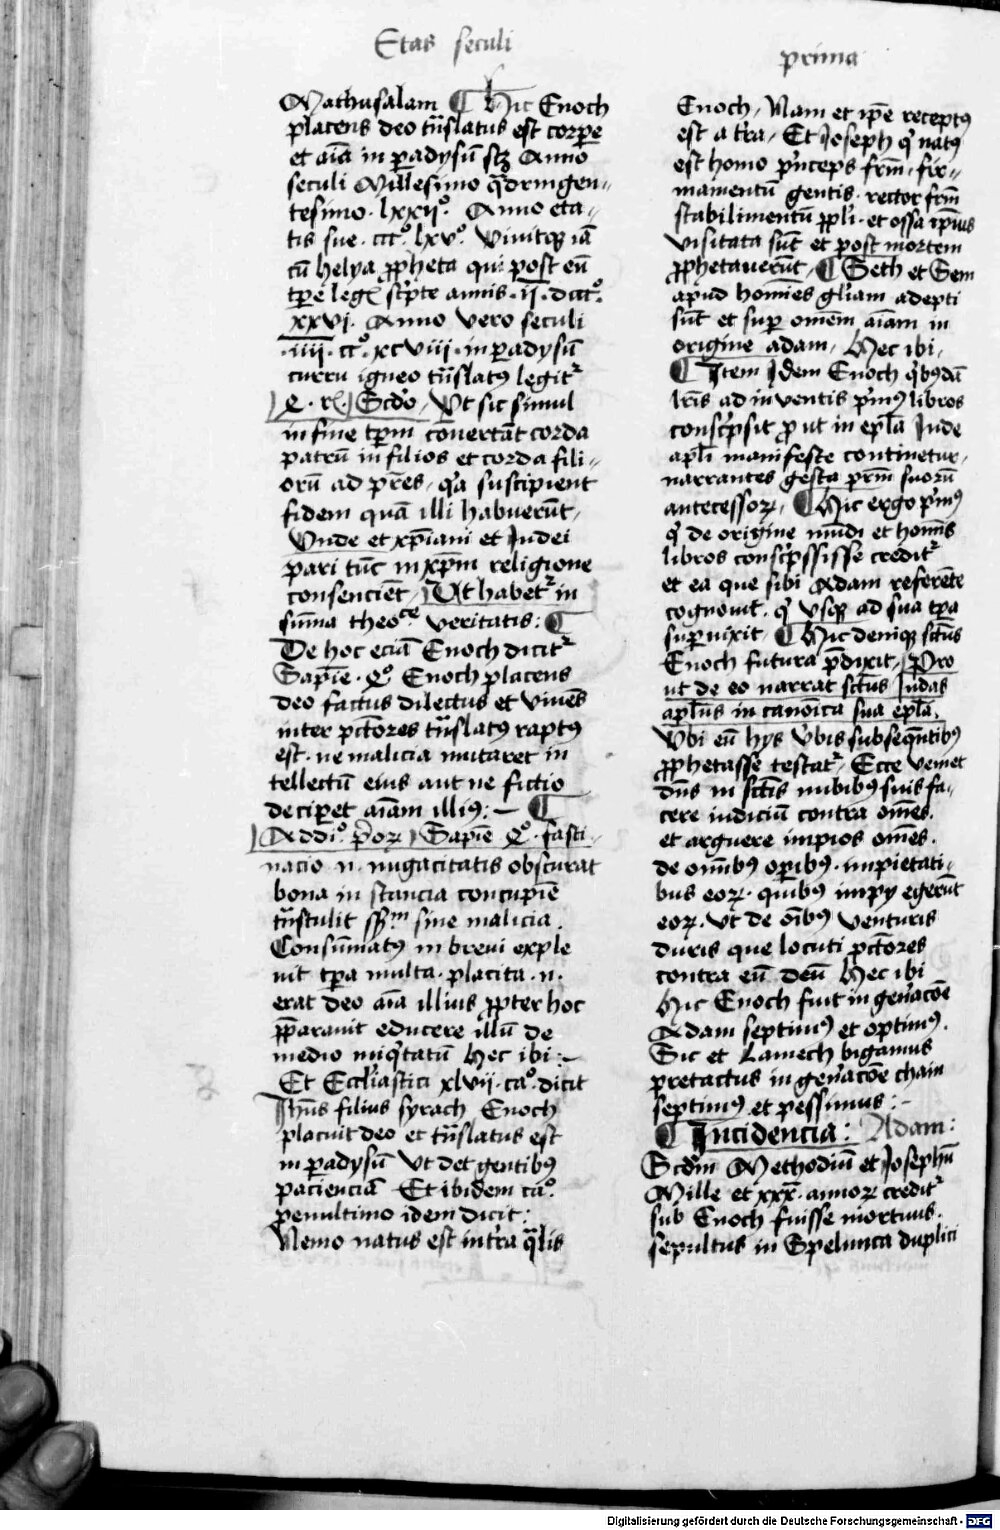 Etas seculi
prima
Mathusalam ¶ Hic Enoch
placens deo trāslatus est corpe
et aīa in padysū scz Anno
seculi Millesimo qͣdringen-
tesimo · lxxijº · Anno eta-
tis sue · cccº · lxvº · Viuitqꝫ iā
cū helya ꝓpheta qui post eū
tpe legē sc̄pte annis · ij · dcccº ·
xxvi · Anno vero seculi
· iiii · ccº · xcviii · in padysū
curru igneo trāslatꝰ legitᷣ
Scd̄o / Vt sic simul
in fine tp̄m cōuertāt corda
patrū in filios et corda fili-
orū ad pr̄es / qͣ suscipient
fidem quā illi habuerūt /
Vnde et xp̄iani et Iudei
pari tūc in xp̄m religione
consencie̅t / Vt habetᷣ in
sūma theoᶜᵉ veritatis : ¶
De hoc eciā Enoch dicitᷣ
Sapīe · 4º Enoch placens
deo factus dilectus et viuēs
inter pctōres trāslatꝰ raptꝰ
est · ne malicia mutaret in
tellectū eius aut ne fictio
decipet aīam illiꝰ : — ¶
Addiº Sapīe 4º · fasci-
nacio · n · nugacitatis obscurat
bona in stancia concupīe
trāstulit sine malicia .
Consūmatꝰ in breui exple
uit tpa multa · placita · n ·
erat deo aīa illius ꝓpter hoc
ꝓparauit educere illū de
medio iniqͣtatū Hec ibi : —
Et Eccl̄iastici xlvij · caº · dicit
Ihūs filius syrach Enoch
placuit deo et trāslatus est
in padysū Vt det gentibꝰ
pacienciā Et ibidem caº ·
penultimo idem dicit :
Nemo natus est in tr̄a qͣlis
Enoch / Nam et ip̄e receptꝰ
est a tr̄a / Et Ioseph qͥ natꝰ
est homo pͥnceps fr̄m · fir-
mamentū gentis · rector fr̄m
stabilimentū ppl̄i · et ossa ip̄ius
visitata sūt et post mortem
ꝓphetauerūt / ¶ Seth et Sem
apud homīes gl̄iam adepti
sūt et sup omēm aīam in
origine adam / Hec ibi /
¶ Item Idem Enoch qͥbꝰdā
lr̄is ad inuentis pͥmꝰ libros
conscͥpsit ꝓ ut in epl̄a Iude
apl̄i manifeste continetur /
narrantes gesta pr̄m suorū
antecessoꝝ / ¶ Hic ergo pͥmꝰ
qͥ de origine mūdi et homīs
libros conscͥpssisse creditᷣ
et ea que sibi Adam referēte
cognouit · qͥ vsqꝫ ad sua tpa
supuixit / ¶ Hic deniqꝫ sctūs
Enoch futura p̄dixit / Pro
ut de eo narrat sctūs Iudas
apl̄us in canōica sua epl̄a .
Vbi eū hys v̄bis subseqn̄tibꝰ
ꝓphetasse testatᷣ Ecce veniet
dn̄s in sctīs nubibꝰ suis fa-
cere iudiciū contra om̄es .
et arguere impios om̄es .
de om̄ibꝰ opibꝰ · impietati-
bus eoꝝ · quibꝰ impy egerūt
eoꝝ · Vt de oībꝰ venturis
duris que locuti pctōres
contra eū deū Hec ibi
Hic Enoch fuit in gen̄acōe
Adam septimꝰ et optimꝰ .
Sic et Lamech bigamus
pretactus in gen̄acōe chain
septimꝰ et pessimus : -
¶ Incidencia : Adam :
Scd̄m Methodiū et Iosephū
Mille et xxx · annoꝝ creditᷣ
sub Enoch fuisse mortuus ·
sepultus in Spelunca duplici
Digitalisierung gefördert durch die Deutsche Forschungsgemeinschaft - DFG